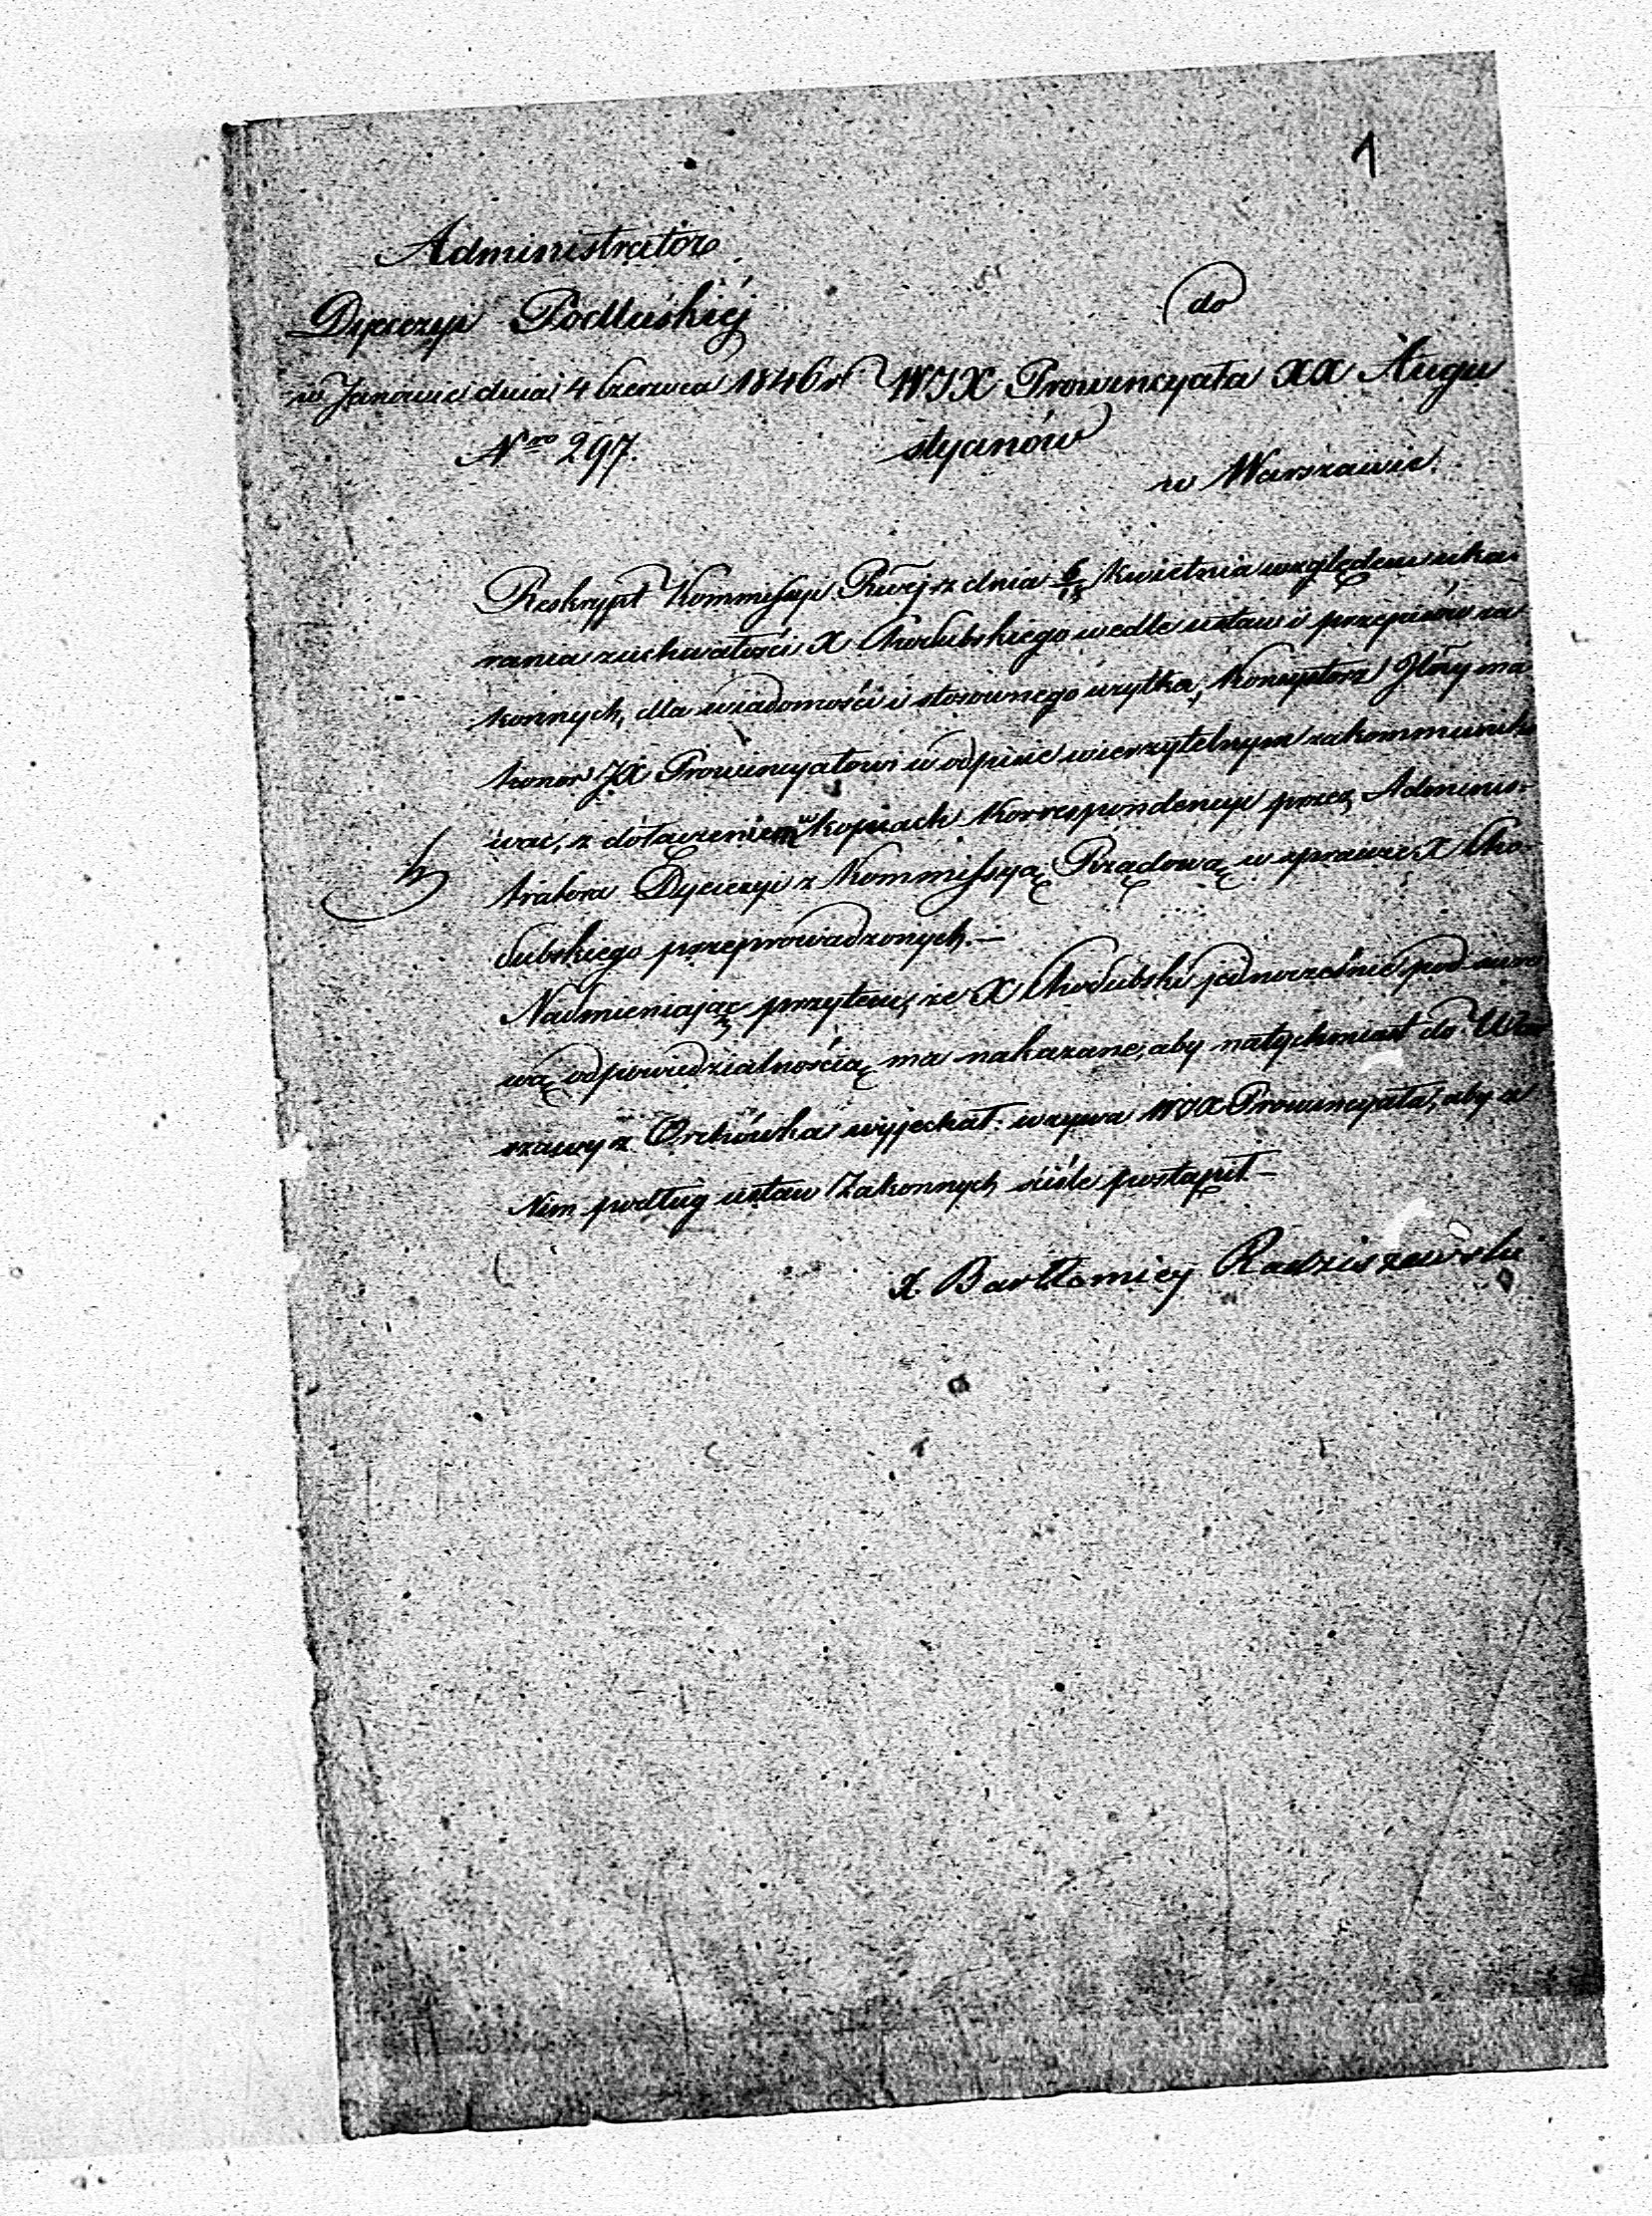 1
Administrator
Dyecezyi Podlaskiéj
w Janowie dnia 4 Czerwca 1846 r
Nro 297.
do
WJX Prowincyała XX Augu
styanów
w Warszawie.
Reskrypt Kommissyi Rwej z dnia 6/18 Kwietnia względem uka-
rania zuchwałości X Chodubskiego wedle ustaw i przepisów za
konnych, dla wiadomości i stosownego użytku, Konsystorz Jlny ma
honor JX Prowincyałowi w odpisie wierzytelnym zakommuniko
wać, z dołączeniem w kopiach Korrespondencyi przez Adminis-
tratora Dyecezyi z Kommissyą Rządową w sprawie X Cho-
dubskiego przeprowadzonych.—
Nadmieniając przytem, że X Chodubski jednocześnie pod suro
wą odpowiedzialnością ma nakazane, aby natychmiast do War
szawy z Orchówka wyjechał: wzywa WJX Prowincyała, aby z
Nim podług ustaw Zakonnych ściśle postąpił—
X. Bartłomiey Radziszewski